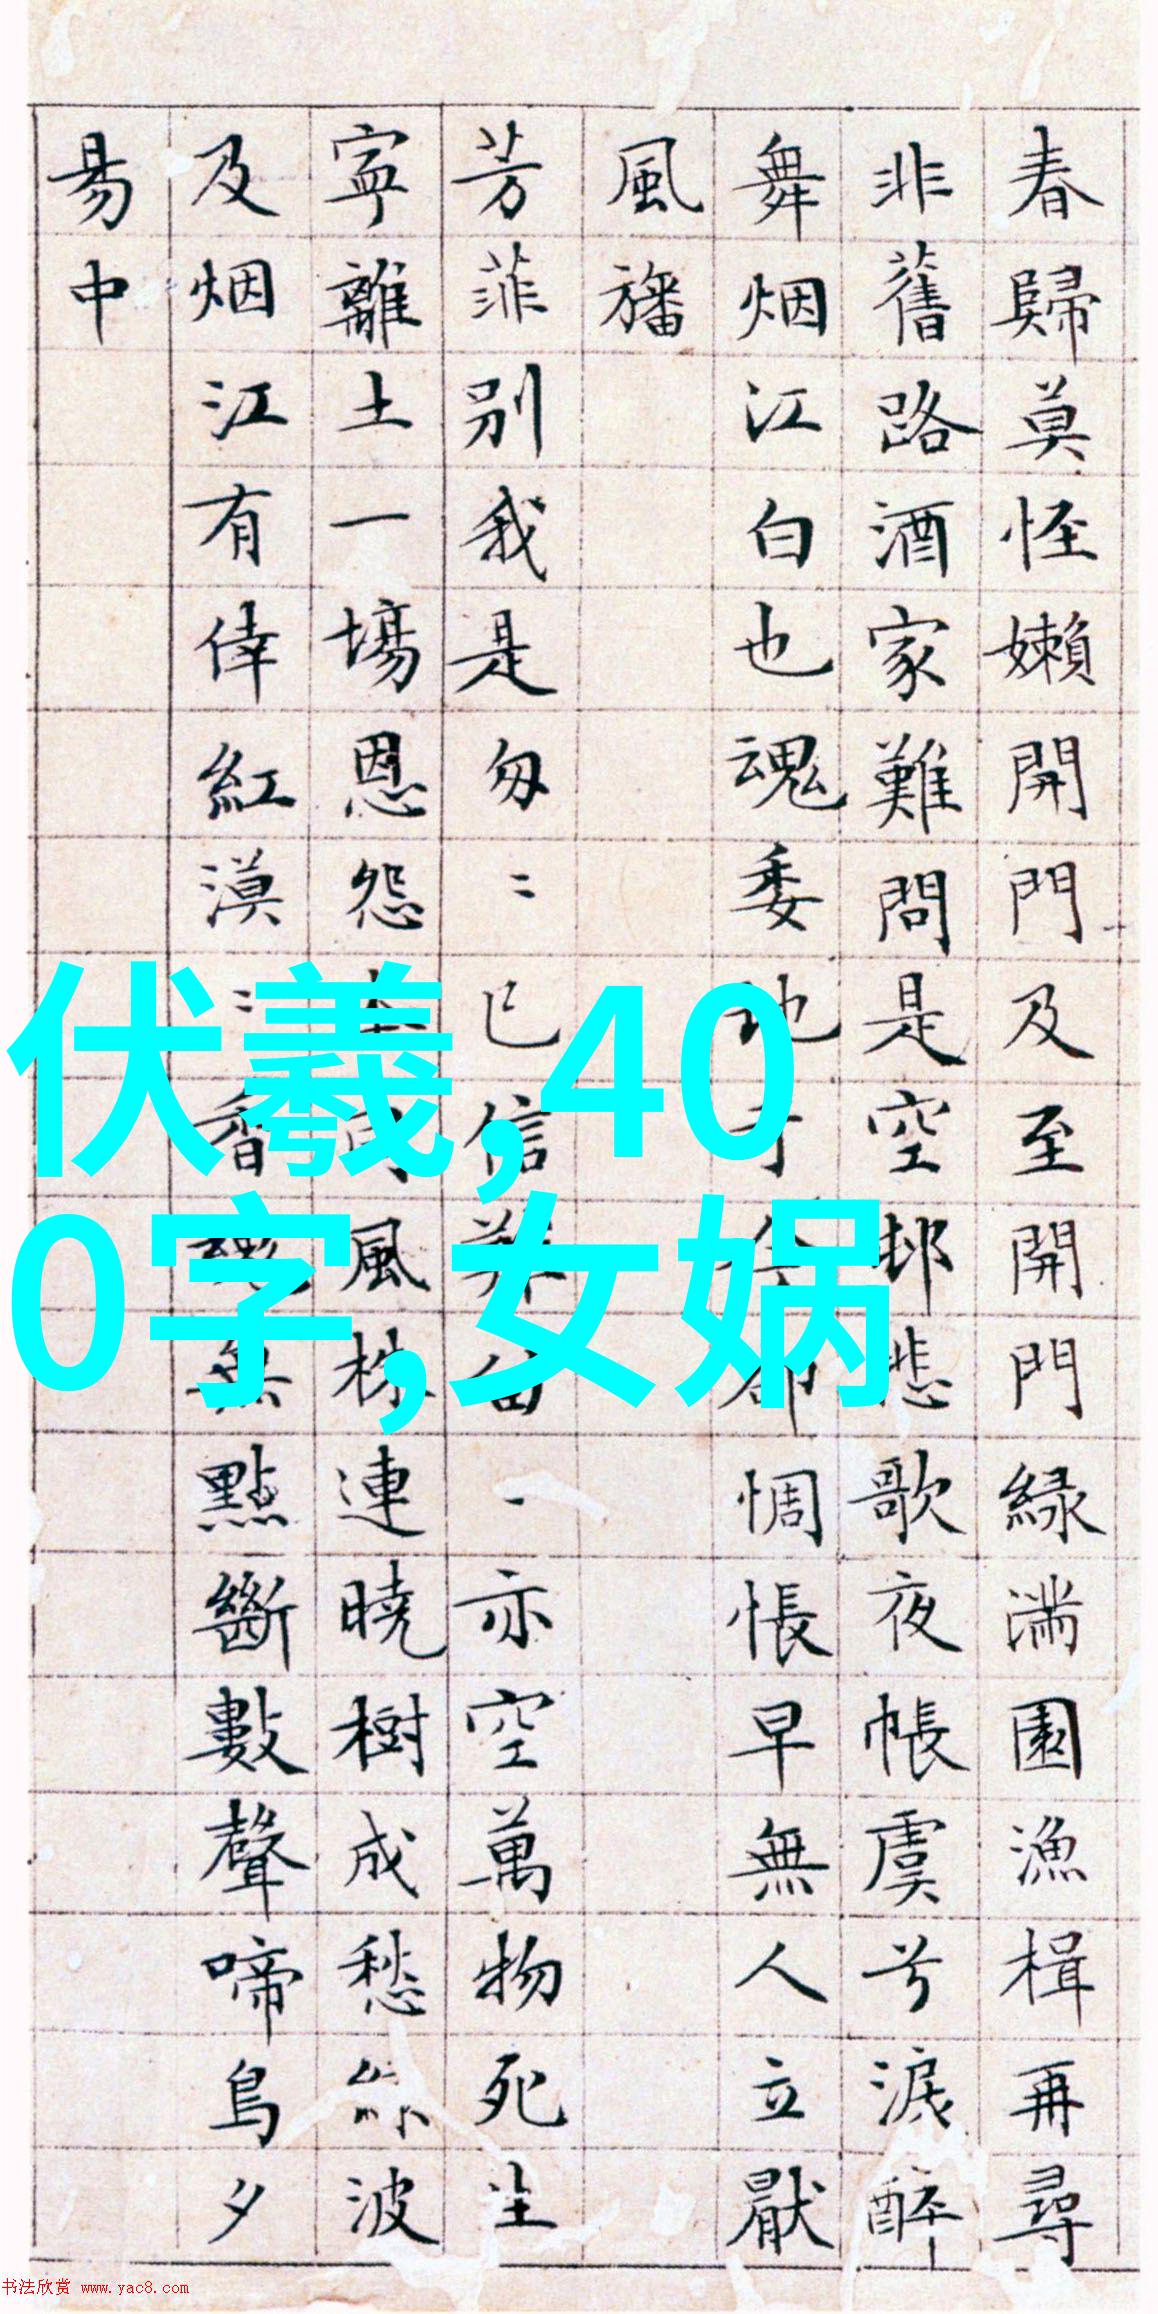 春歸莫怪嬾開門及至開門緑滿園漁楫再尋
非舊路酒家難問是空邨悲歌夜帳虞兮淚醉
舞烟江白也魂委地于今却惆悵早無人立厭
風旛
芳菲別我是匆二已信難留一亦空萬物死生
寧離土一場恩怨本同風株連曉樹成愁綠波
及烟江有倖紅漠二香魂無點斷數聲啼鳥夕
易中
伏羲,40
0字,女娲
书法欣赏 www.yac8.com